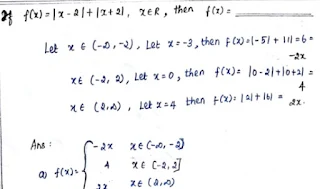 If f(x) = |x-2| + |x+2|, x∈R, then f(x) = ________
Let x ∈ (-∞, -2), Let x = -3, then f(x) = |-5| + |1| = 6 =
-2x
x ∈ (-2, 2), Let x = 0, then f(x) = |0-2| + |0+2| =
4
x ∈ (2, ∞), Let x = 4 then f(x) = |2| + |6| =
2x.
Ans: { -2x x ∈ (-∞, -2]
a) f(x) = { 4 x ∈ (-2, 2]
2x x ∈ (2, ∞)